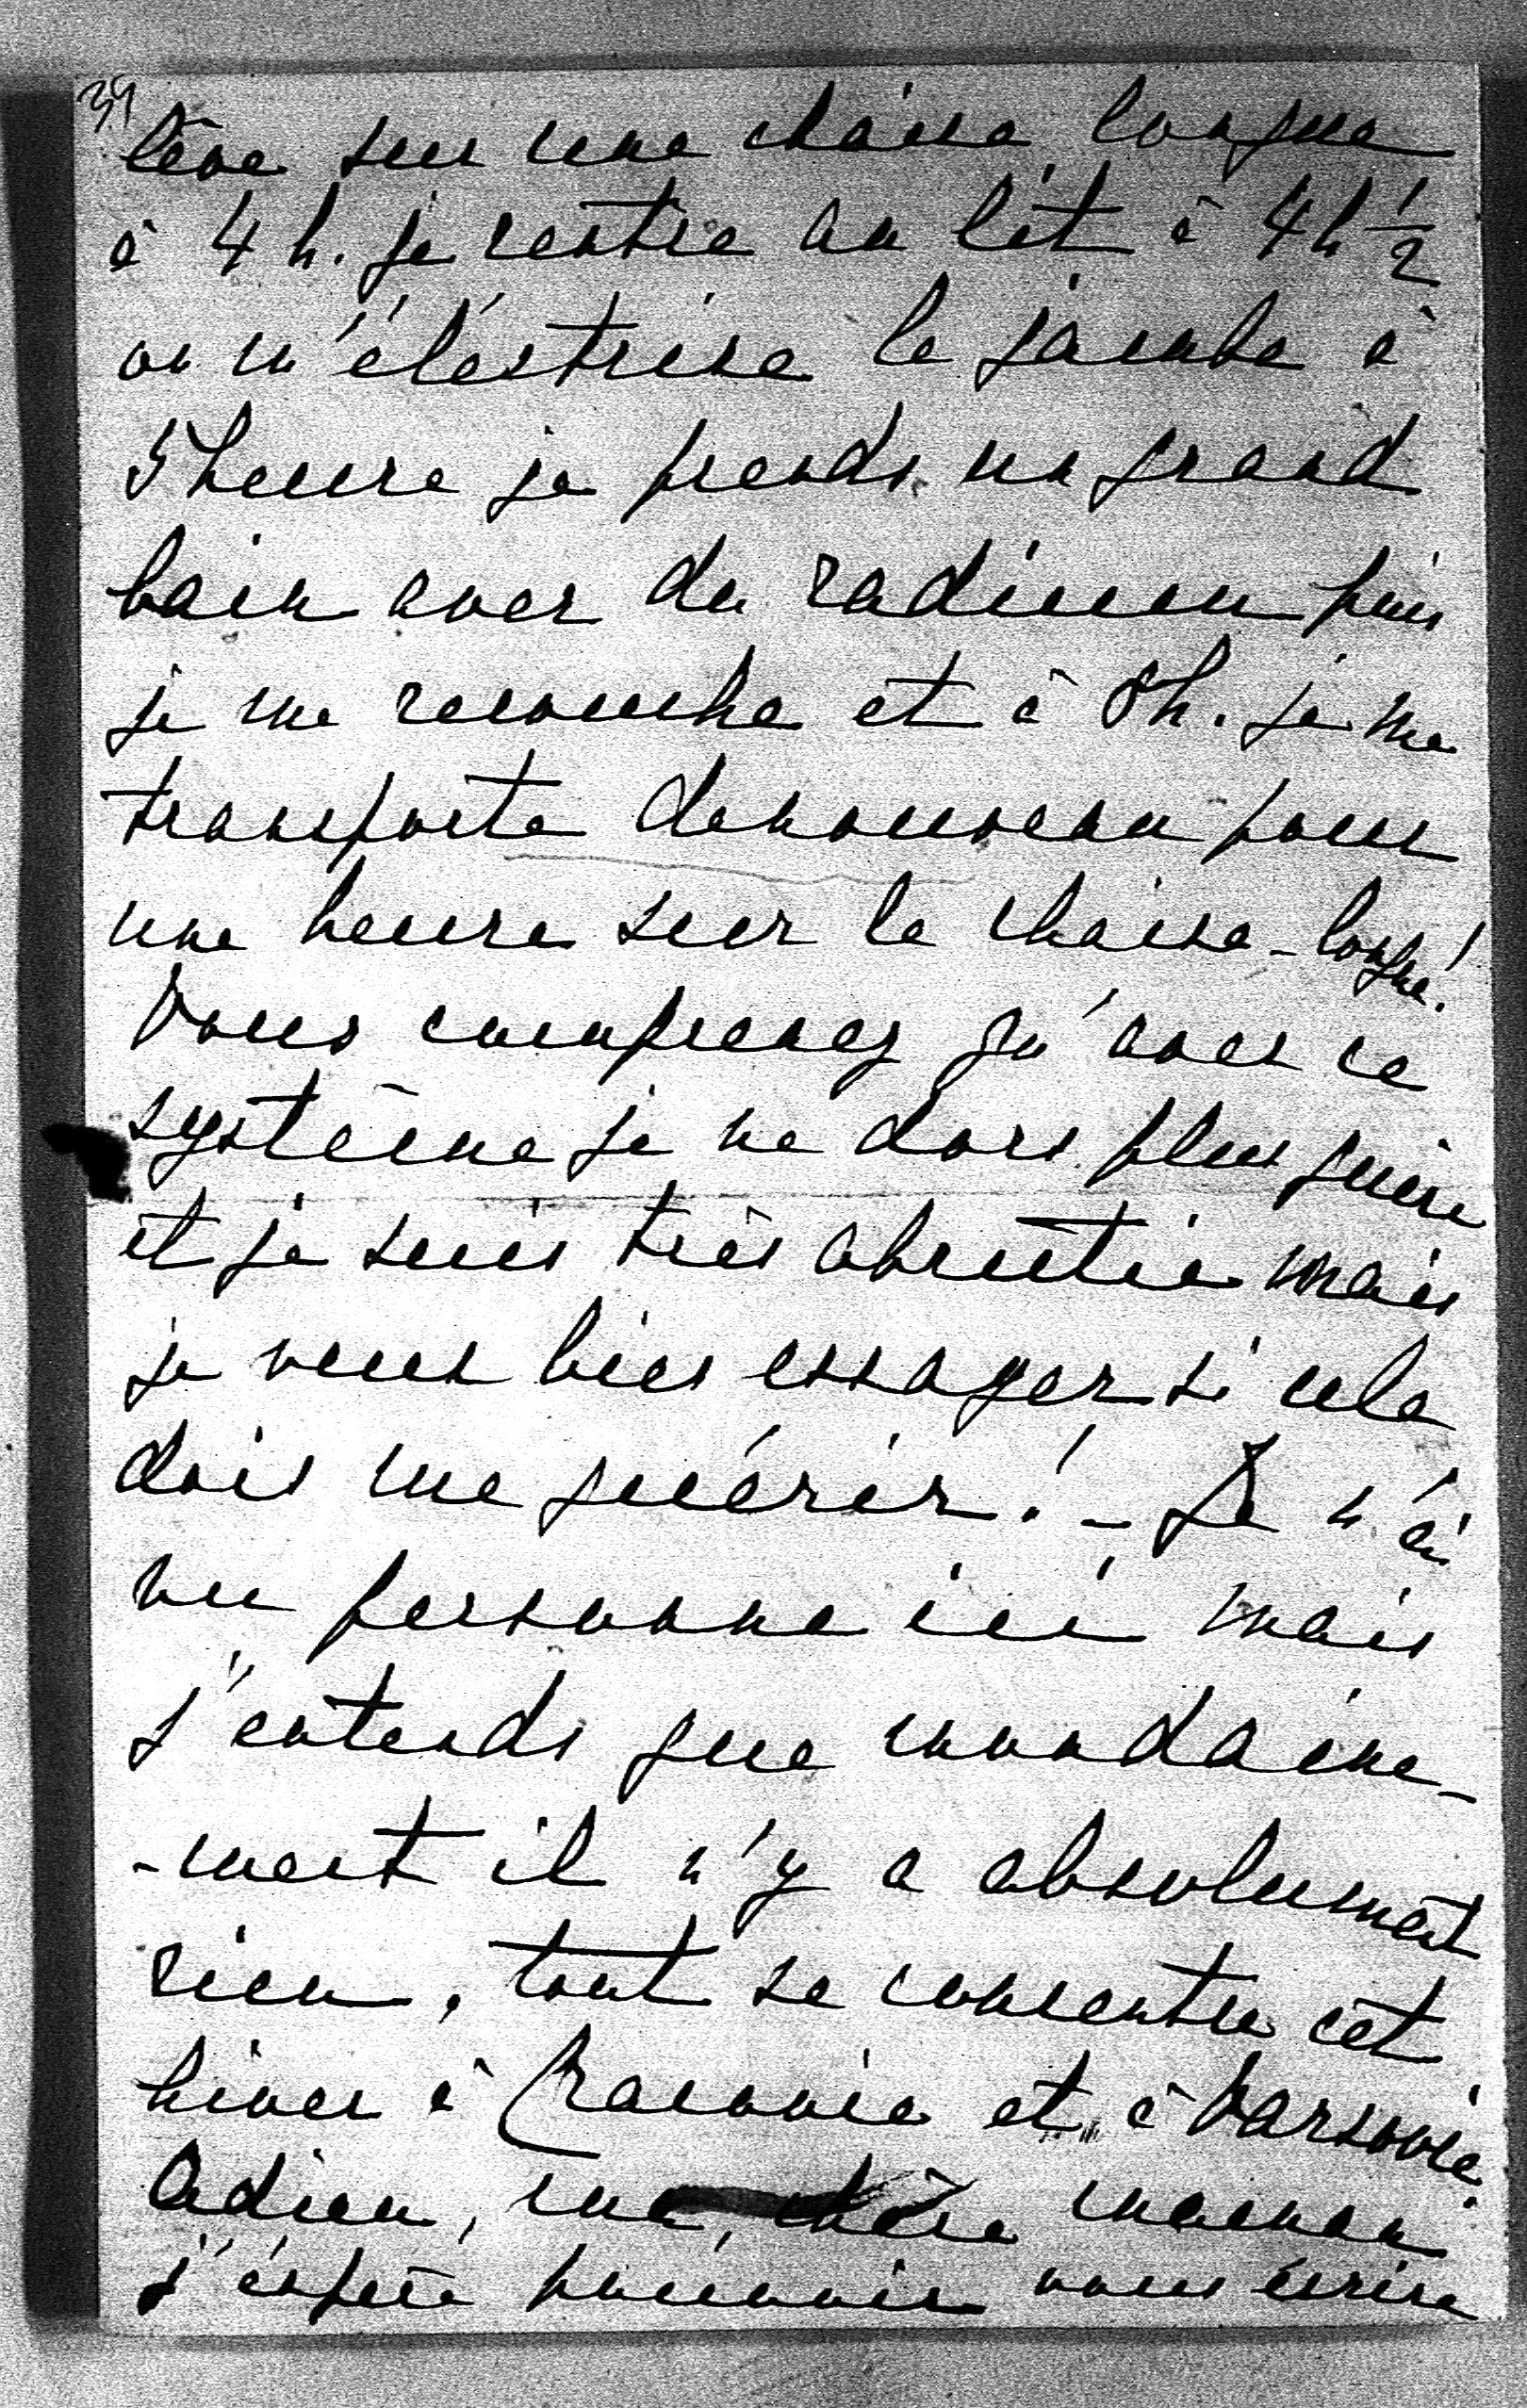 39
lève sur une chaise longue
à 4 h. je rentre au lit à 4h ½
on m'éléctrise la jambe à
5 heure je prends un grand
bain avec du radium puis
je me recouche et à 8h. je me
transporte denouveau pour
une heure sur la chaise-longue!
Vous comprenez qu'avec ce
système je ne dors plus guère
et je suis très abrutie mais
je veux bien essayer si cela
dois me guérir! - Je n'ai
vu personne ici mais
j'entends que mondaine-
-ment il n'y a absolument
rien, tout se concentre cet
hiver à Cracovie et à Varsovie.
Adieu, ma chère maman
j'éspère pouvoir vous écrire